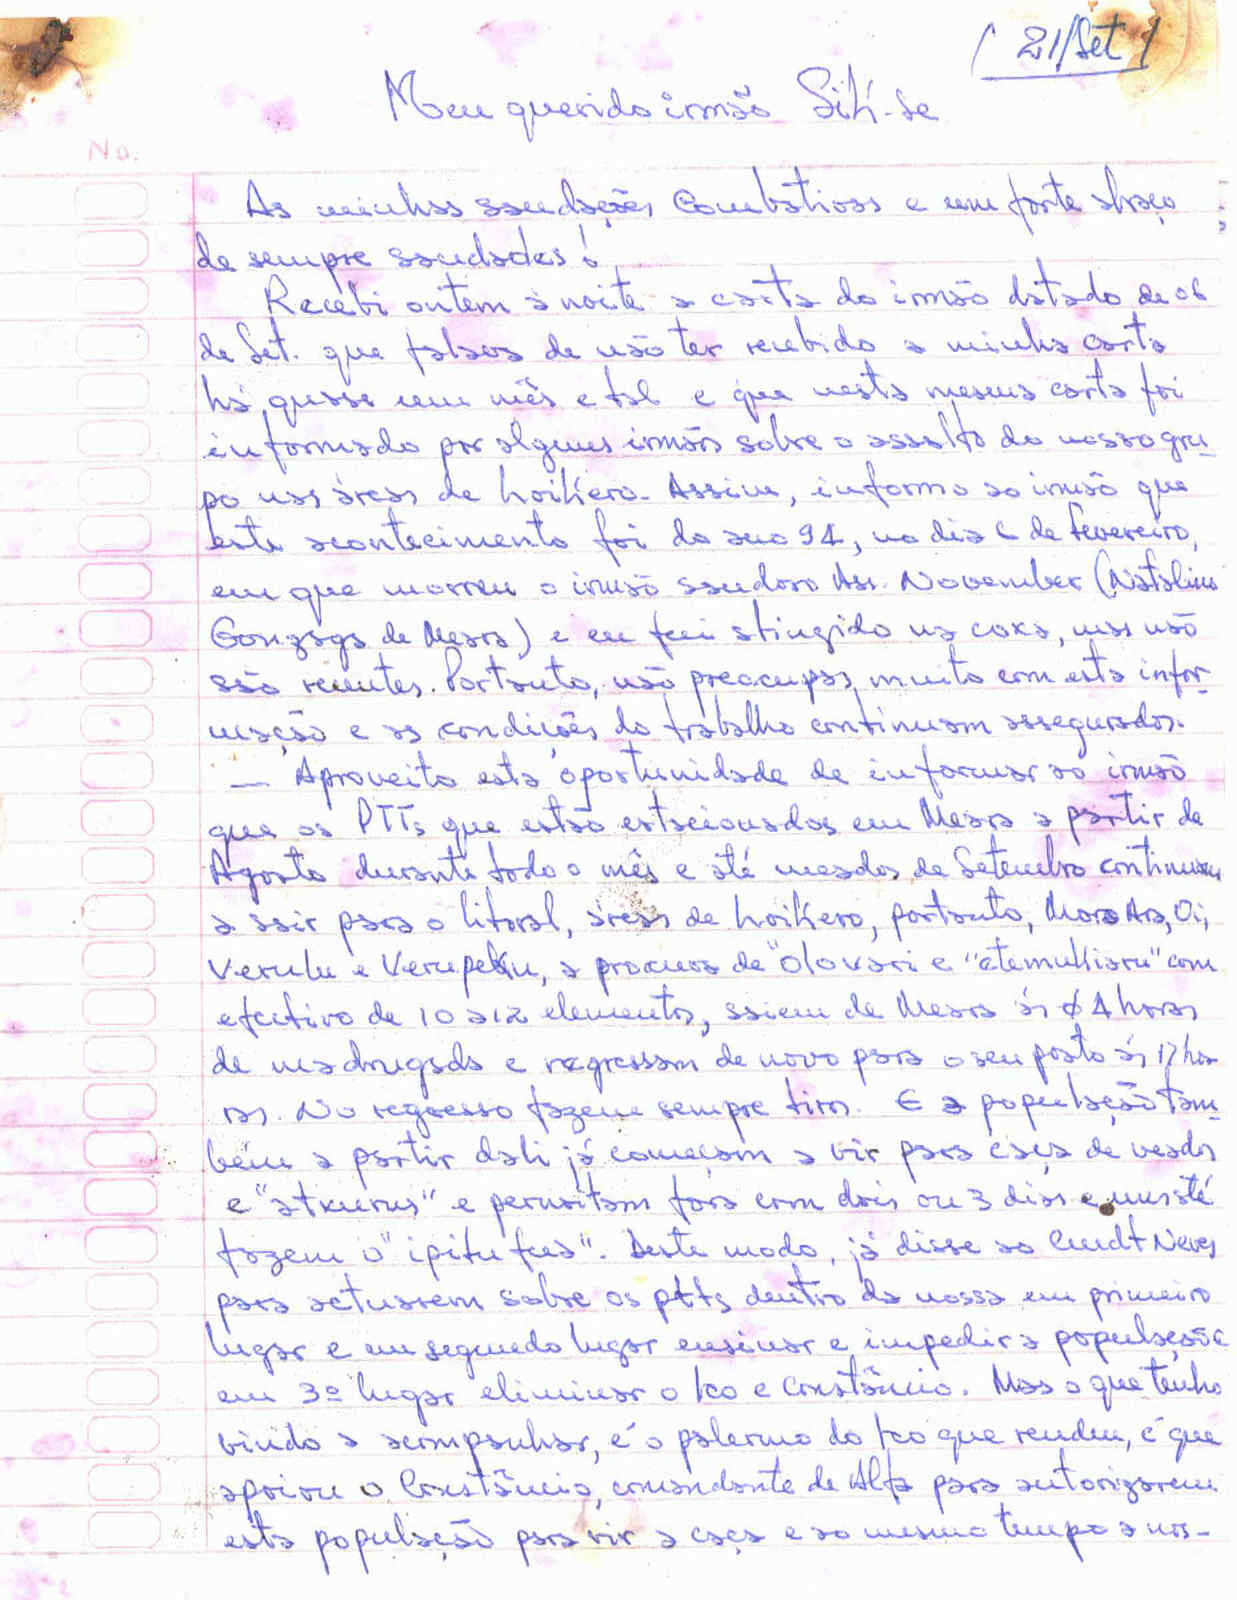 ( 21/Set )
Meu querido irmão Sihí-se
No.
As minhas saudações Combativas e um forte abraço
de sempre saudades!
Recebi ontem à noite a carta do irmão datado de 06
de Set. que falava de não ter recebido a minha carta
há quase um mês e tal e que nesta mesma carta foi
informado por alguns irmãos sobre o assalto do nosso gru-
po nas áreas de hoikero. Assim, informo ao irmão que
este acontecimento foi do ano 94, no dia 6 de fevereiro,
em que morreu o irmão saudoso Ass. November (Natalino
Gonzaga de Meara) e eu fui atingido na coxa, mas não
são recentes. Portanto, não preocupas muito com esta infor-
mação e as condições do trabalho continuam asseguradas.
— Aproveito esta oportunidade de informar ao irmão
que os PTTs que estão estacionados em Meara a partir de
Agosto durante todo o mês e até meados de Setembro continuam
a sair para o litoral, áreas de hoikero, portanto, Mora Ara, Oi,
Verulu e Verupeku, a procura de "olovari e "etemulhiaru" com
efectivo de 10 a 12 elementos, saiem de Meara ás ø4 horas
de madrugada e regressam de novo para o seu posto ás 17 ho
ras. No regresso fazem sempre tiros. E a população tam-
bém a partir dali já começam a vir para caça de veados
e "atxurus" e pernoitam fora com dois ou 3 dias e mas até
fazem o "ipitu fua". Deste modo, já disse ao Cmdt Neves
para actuarem sobre os ptts dentro da nossa em primeiro
lugar e em segundo lugar ensinar e impedir a população e
em 3º lugar eliminar o Ico e Constâncio. Mas o que tenho
vindo a acompanhar, é o palermo do Ico que rendeu, é que
apoiou o Constâncio, comandante de Alfa para autorizarem
esta população para vir a caça e ao mesmo tempo a nos-